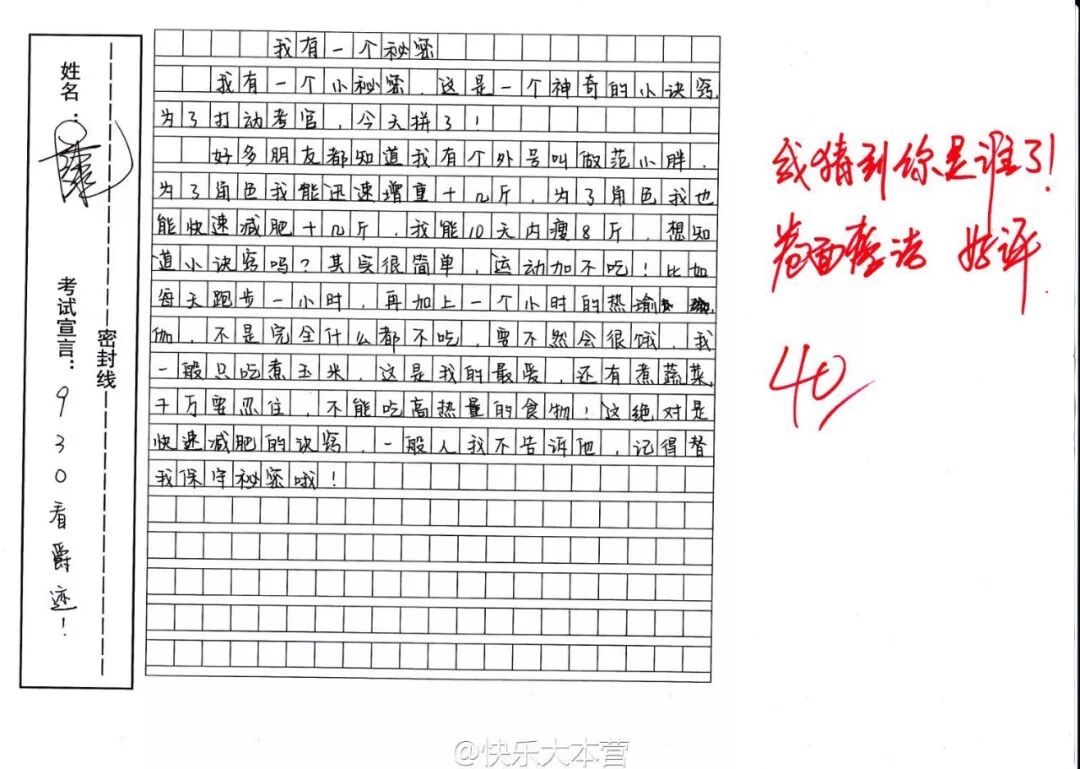 姓名:
考试宣言:
930看爵迹!
密封线
我有一个秘密
我有一个小秘密,这是一个神奇的小诀窍,
为了打动考官,今天拼了!
好多朋友都知道我有个外号叫做范小胖,
为了角色我能迅速增重十几斤,为了角色我也
能快速减肥十几斤,我能10天内瘦8斤,想知
道小诀窍吗?其实很简单,运动加不吃!比如
每天跑步一小时,再加上一个小时的热瑜
伽,不是完全什么都不吃,要不然会很饿,我
一般只吃煮玉米,这是我的最爱,还有煮蔬菜,
千万要忍住,不能吃高热量的食物!这绝对是
快速减肥的诀窍,一般人我不告诉他,记得替
我保守秘密哦!
我猜到你是谁了!
卷面整洁 好评
40
@快乐大本营